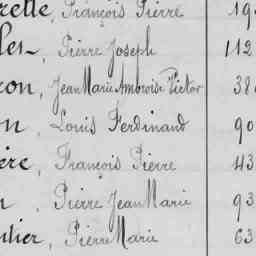 relle, François Pierre 19
les, Pierre Joseph 112
ron, Jean Marie Ambroise Victor 38
on, Louis Ferdinand 90
ère, François Pierre 43
n, Pierre Jean Marie 93
ntier, Pierre Marie 63